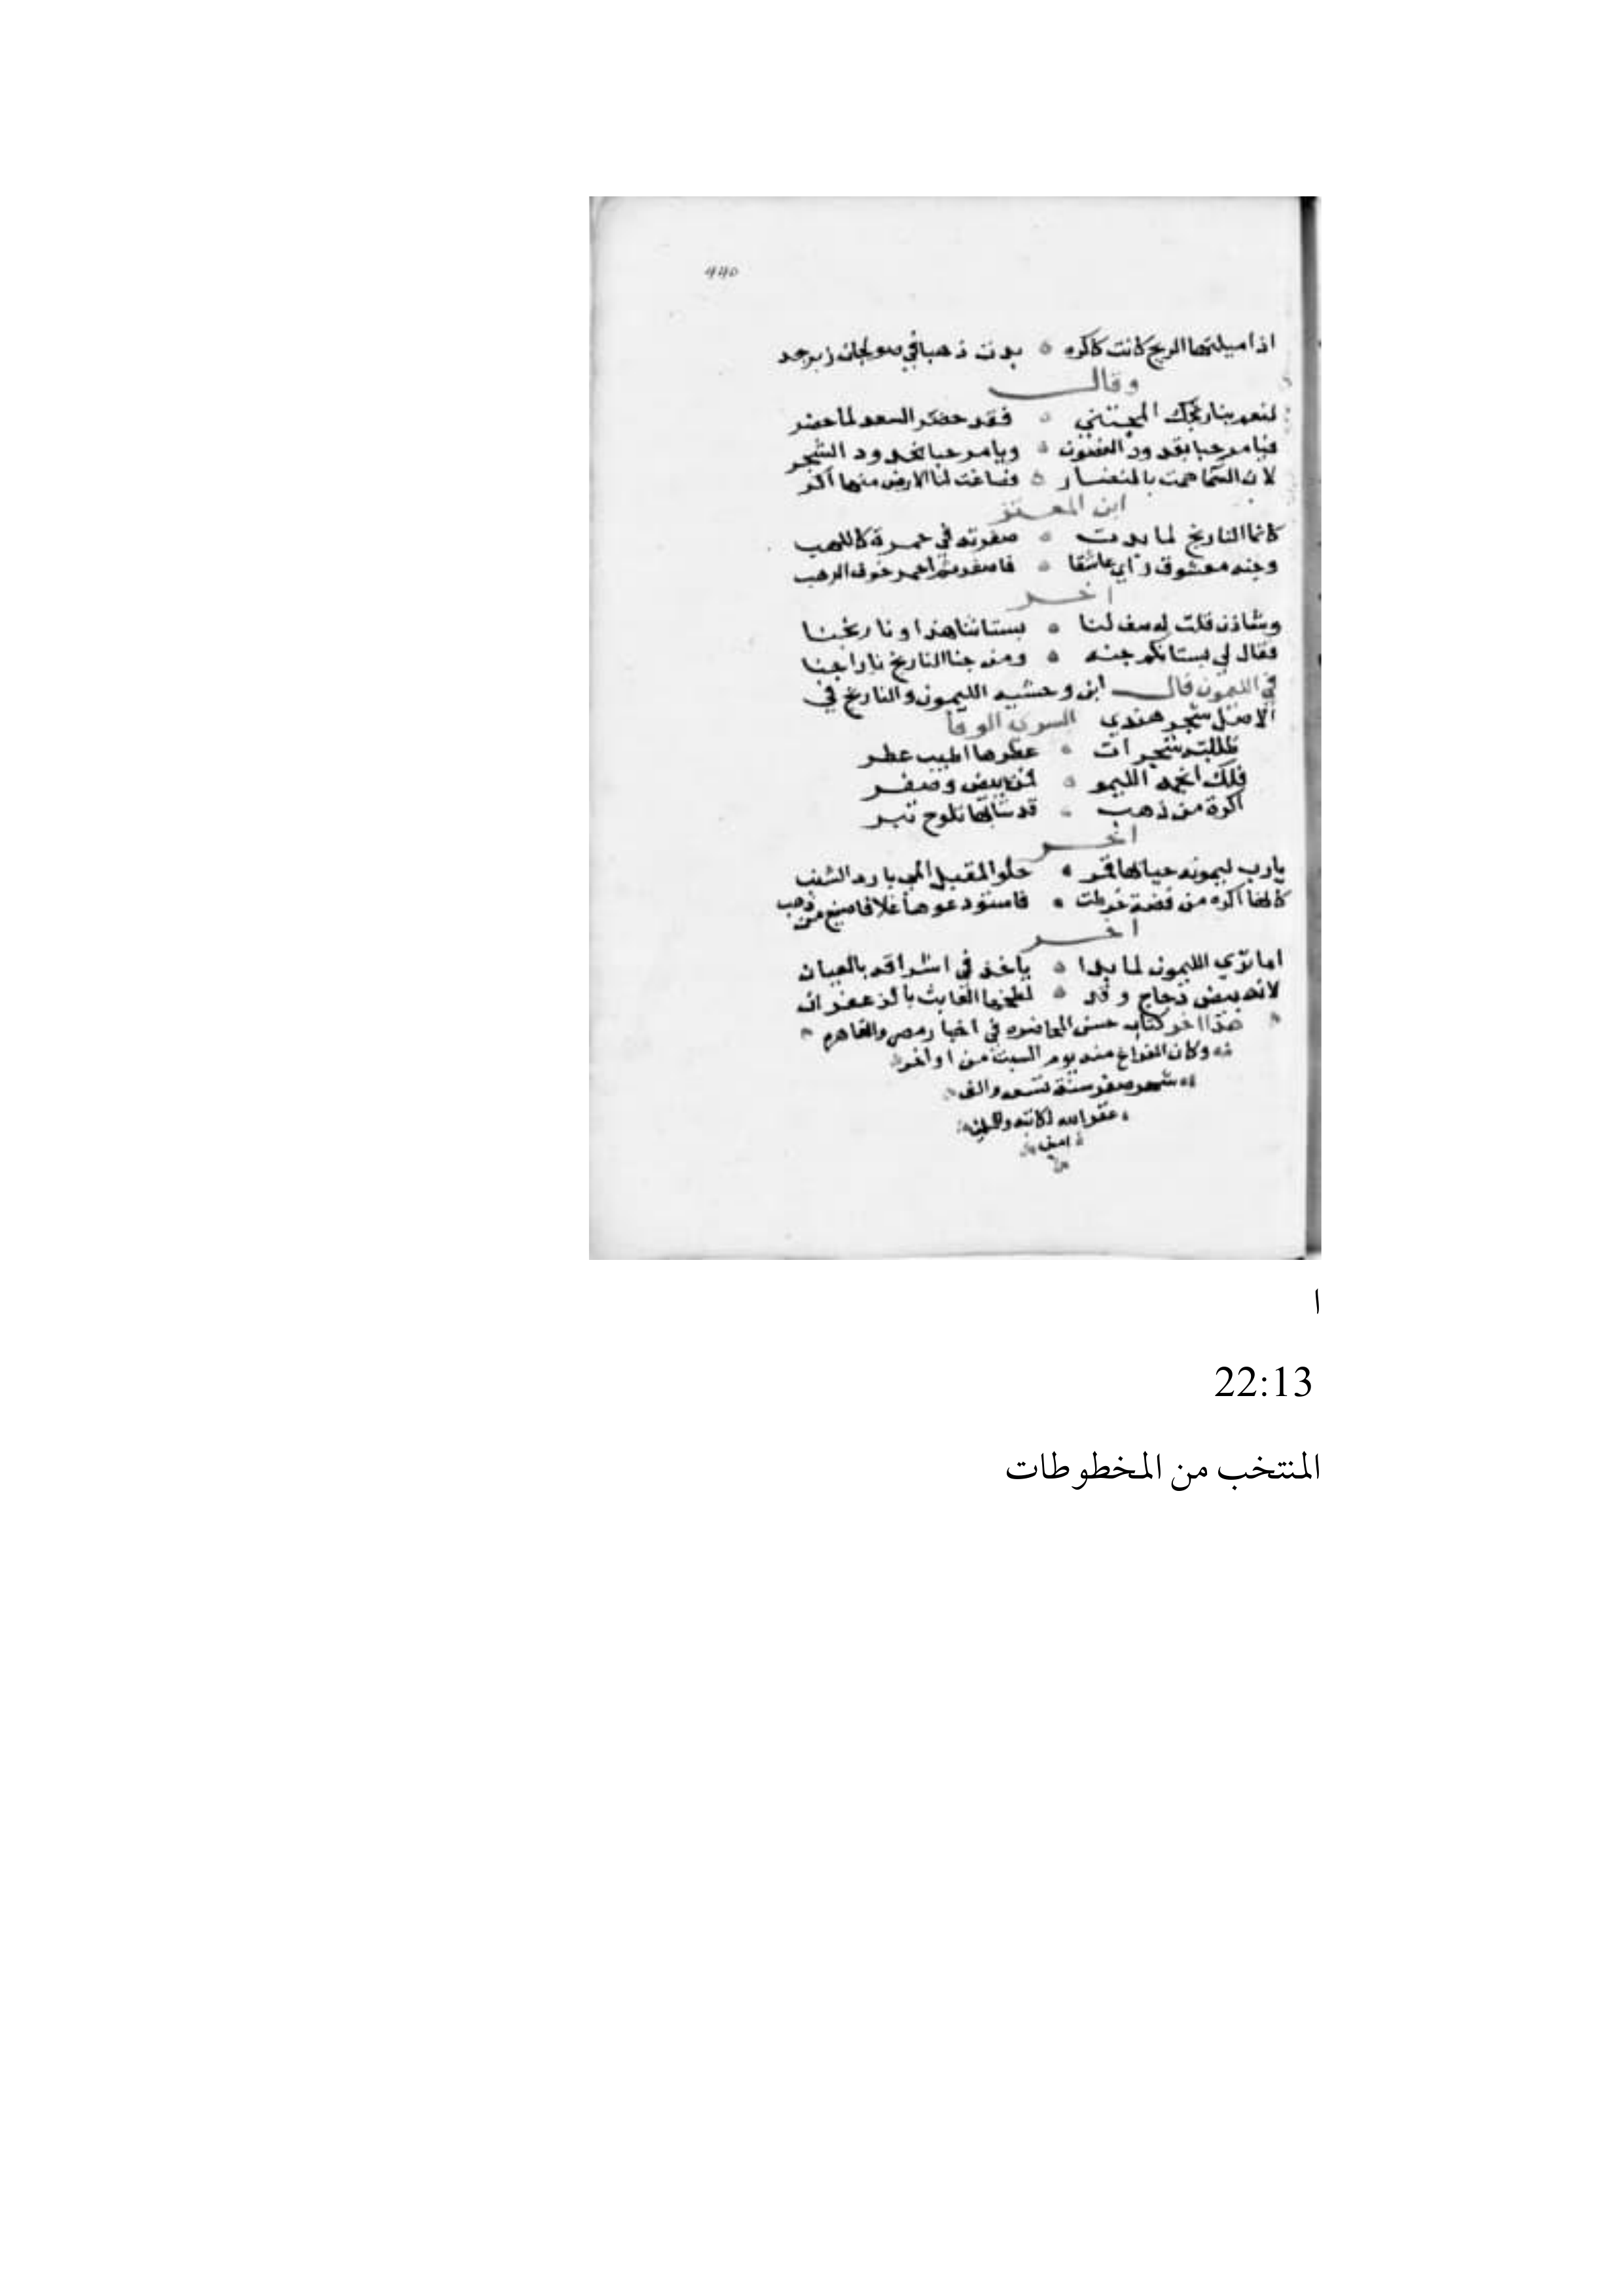 440
اذا ميلتها الريح كانت كاكره ° بدت ذهبا في صولجان زبرجد
وقال
تنعم بنارنجك المجتني ° فقد حضر السعد لما حضر
فيا مرحبا بقدود الغصون ° ويا مرحبا بخدود الشجر
لان السما همت بالنضار ° فصاغت لنا الارض منها اكر
ابن المعتز
كانما النارنج لما بدت ° صفرته في حمرة كاللهب
وجنه معشوق راي عاشقا ° فاصفر ثم احمر خوف الرهب
اخر
وشادن قلت له صف لنا ° بستاننا هذا ونارنجنا
فقال لي بستانكم جنه ° ومن جنا النارنج نارا جنا
في الليمون قال ابن وحشيه الليمون والنارنج في
الاصل شجر هندي السري الرفا
ظللته شجرات ° عطرها اطيب عطر
فلك انجمه الليمو ° ن بيض وصفر
اكرة من ذهب ° قد شابها تلوح تبر
اخر
يارب ليمونه حيا بها قمر ° حلو المقبل المي بارد الشنب
كانها اكره من فضة خرطت ° فاستودعوها غلافا صيغ من ذهب
اخر
اما تري الليمون لما بدا ° ياخذ في اشراقه بالعيان
لانه بيض دجاج وقد ° لطخها العابث بالزعفران
هذا اخر كتاب حسن المحاضره في اخبار مصر والقاهره
وكان الفراغ منه يوم السبت من اواخر
شهر صفر سنة تسع والف
غفر الله لكاتبه
امين
ا
22:13
المنتخب من المخطوطات